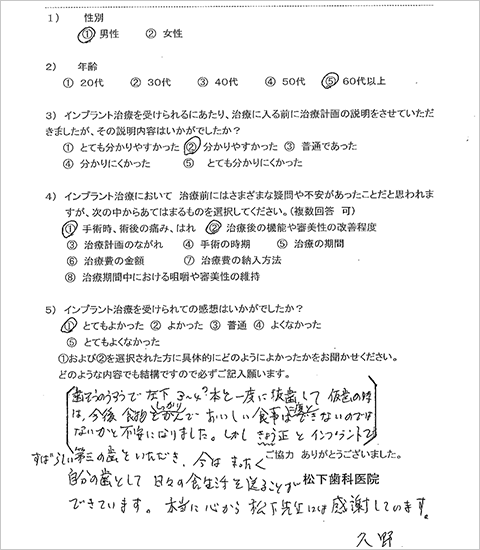 1） 性別
① 男性 ② 女性
2） 年齢
① 20代 ② 30代 ③ 40代 ④ 50代 ⑤ 60代以上
3）インプラント治療を受けられるにあたり、治療に入る前に治療計画の説明をさせていただ
きましたが、その説明内容はいかがでしたか？
① とても分かりやすかった ② 分かりやすかった ③ 普通であった
④ 分かりにくかった ⑤ とても分かりにくかった
4）インプラント治療において 治療前にはさまざまな疑問や不安があったことだと思われま
すが、次の中からあてはまるものを選択してください。（複数回答 可）
① 手術時、術後の痛み、はれ ② 治療後の機能や審美性の改善程度
③ 治療計画のながれ ④ 手術の時期 ⑤ 治療の期間
⑥ 治療費の金額 ⑦ 治療費の納入方法
⑧ 治療期間中における咀嚼や審美性の維持
5）インプラント治療を受けられての感想はいかがでしたか？
① とてもよかった ② よかった ③ 普通 ④ よくなかった
⑤ とてもよくなかった
①および②を選択された方に具体的にどのようによかったかをお聞かせください。
どのような内容でも結構ですので必ずご記入願います。
歯そうのうろうで左下3〜4本を一度に抜歯して仮歯の時
は、今後食物をしっかりかんでおいしい食事は二度とできないのでは
ないかと不安になりました。しかしきょう正とインプラントで
すばらしい第三の歯をいただき、今はまったく
ご協力 ありがとうございました。
自分の歯として日々の食生活を送ることが
松下歯科医院
できています。本当に心から松下先生には感謝しています。
久野